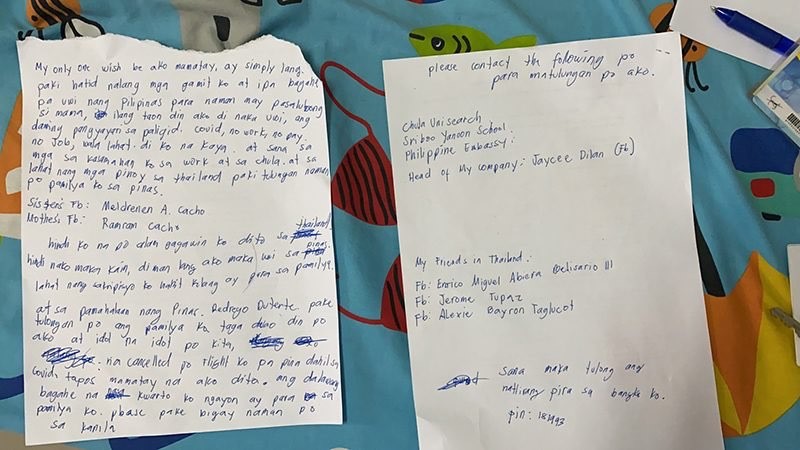 My only one wish be ako mamatay, ay simply lang.
paki hatid nalang mga gamit ko at ipa bagahe
pa uwi nang Pilipinas para naman may pasalubong
si mama, ilang taon din ako di naka uwi, ang
daming pangyayari sa paligid. covid, no work, no pay.
no Job, wala lahat. di ko na kaya. at sana sa
mga sa kasamahan ko sa work at sa chula. at sa
lahat nang mga pinoy sa thailand paki tulungan naman
po pamilya ko sa pinas.
Sister's Fb: Meldrenen A. Cacho
Mothers Fb: Ramran Cacho
hindi ko na po alam gagawin ko dito sa thailand
hindi nako makaq kain, di man lang ako maka uwi sa pinas.
lahat nang ko kobag ay para sa pamilya.
at sa pamahalaan nang Pinas. Rodrego Duterte pake
tulongan po ang pamilya ko. taga din po
ako at idol na idol po kita,
na cancelled po flight ko pa pina dahil sa
covid. tapos mamatay na ako dito. ang dalawang
bagahe na kwarto ko ngayon ay para sa
pamilya ko. please pake bigay naman po
sa kanila
please contact the following po
para matulungan po ako.
Chula Unisearch
Sribro Yanoon School:
Philippine Embassy:
Head of My company: Jaycee Dilan (Fb)
My Friends in Thailand:
Fb: Enrico Miguel Abiera Belisario III
Fb: Jerome Tupaz
Fb: Alexie Bayron Taglucot
Sana maka tulong ang
natirang pira sa bangko ko.
pin: